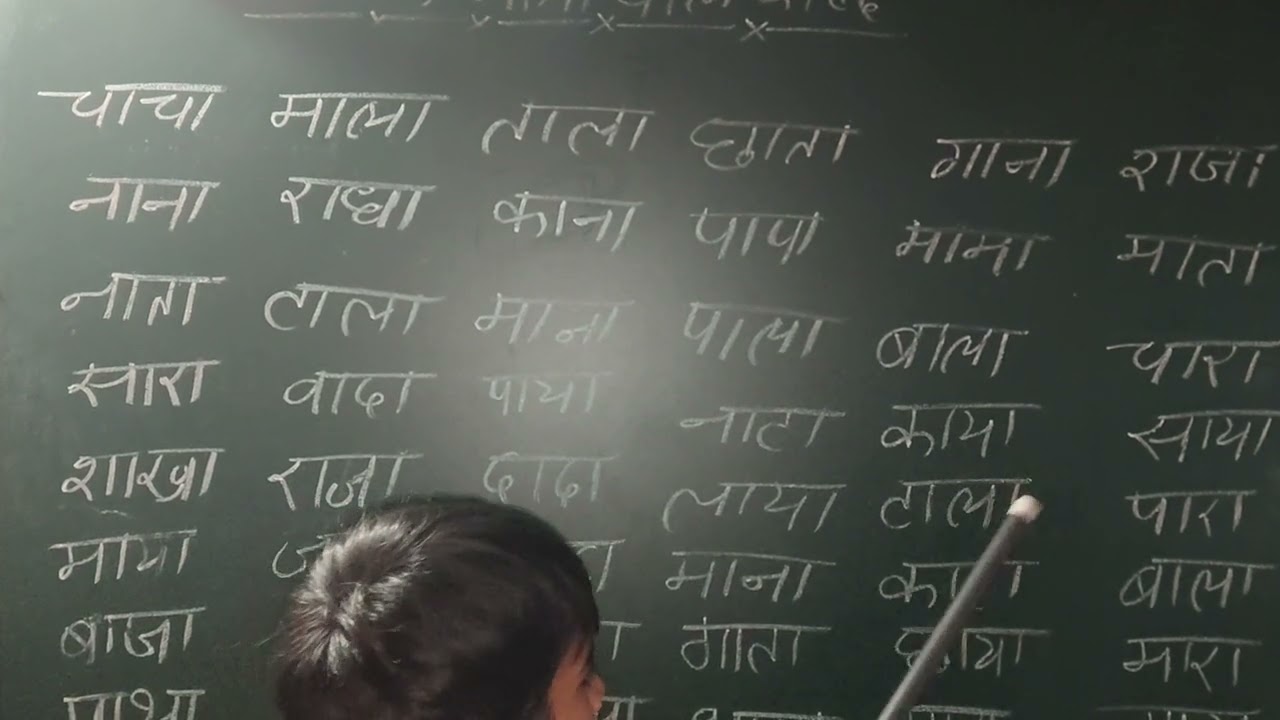 चाचा माला ताला छाता गाना राजा
नाना राधा काना पापा मामा माता
नाता टाला माना पाला बाला चारा
सारा वादा पाया नाटा काया साया
शाखा राजा दादा लाया टाला पारा
माया माना बाला
बाजा गाता छाया मारा